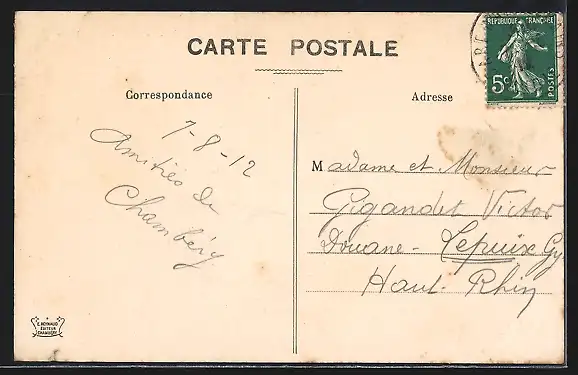 CARTE POSTALE
REPUBLIQUE FRANÇAISE
5c
POSTES
Correspondance
Adresse
7-8-12
Amitiés de
Chambéry
Madame et Monsieur
Gigandet Victor
Douane - Lepuix Gy
Haut-Rhin
E. REYNAUD
EDITEUR
CHAMBERY